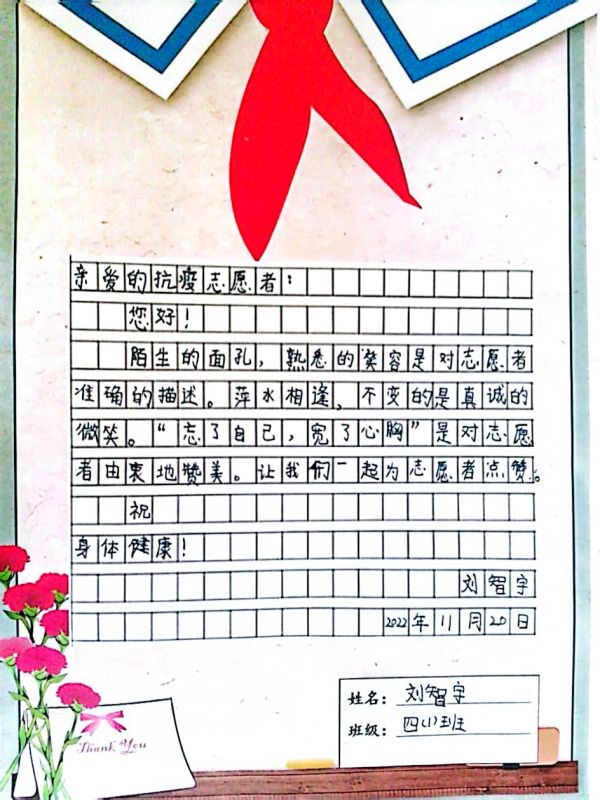 亲爱的抗疫志愿者：
您好！
陌生的面孔，熟悉的笑容是对志愿者
准确的描述。萍水相逢，不变的是真诚的
微笑。“忘了自己，宽了心胸”是对志愿
者由衷地赞美。让我们一起为志愿者点赞。
祝
身体健康！
刘智宇
2022年11月20日
姓名：刘智宇
班级：四(1)班
Thank You